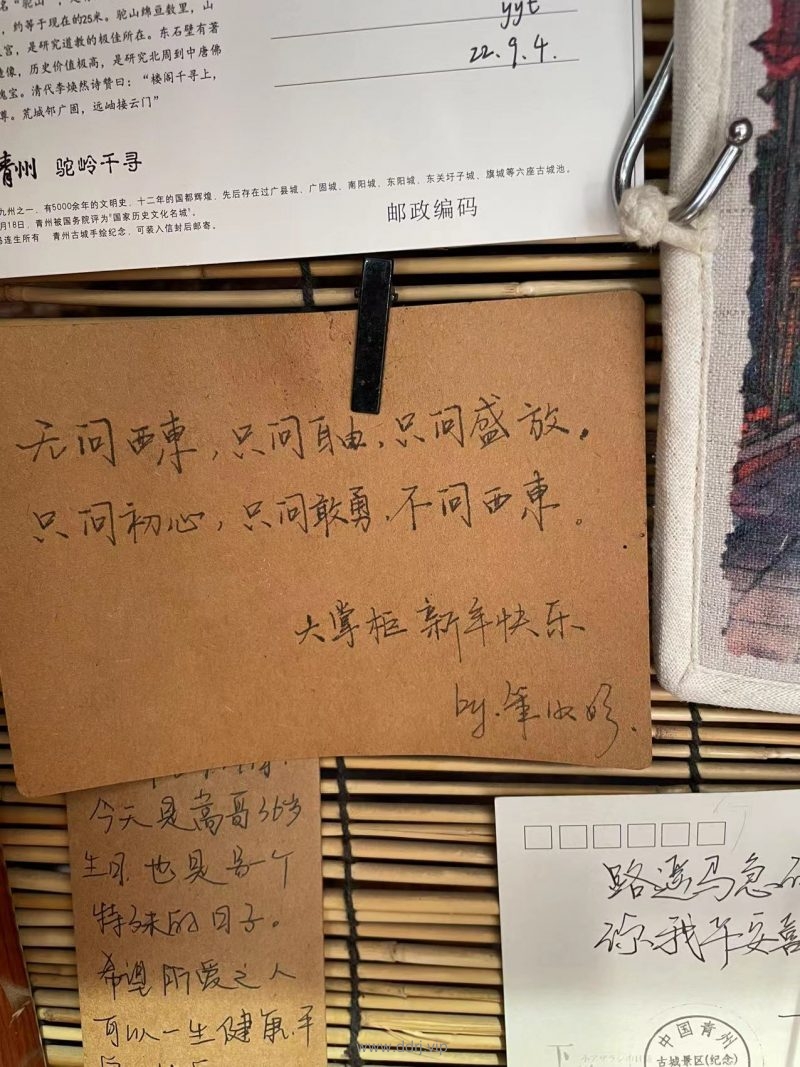 名"驼山",
,约等于现在的25米。驼山绵亘数里,山
宫,是研究道教的极佳所在。东石壁有著
造像,历史价值极高,是研究北周到中唐佛
瑰宝。清代李焕然诗赞曰:"楼阁千寻上,
尊。荒城邻广固,远岫接云门"
yyt
22.9.4.
青州 驼岭千寻
九州之一,有5000余年的文明史,十二年的国都辉煌,先后存在过广县城、广固城、南阳城、东阳城、东关圩子城、旗城等六座古城池。
月18日,青州被国务院评为"国家历史文化名城"。
连生所有 青州古城手绘纪念,可装入信封后邮寄。
邮政编码
无问西東,只问自由,只问盛放。
只问初心,只问敢勇,不问西東。
大掌柜 新年快乐
by.
今天是高哥36岁
生日,也是另一个
特殊的日子。
希望所爱之人
可以一生健康平
路遥马急
你我平安喜
中国青州
古城景区(纪念)
www.ddrj.vip